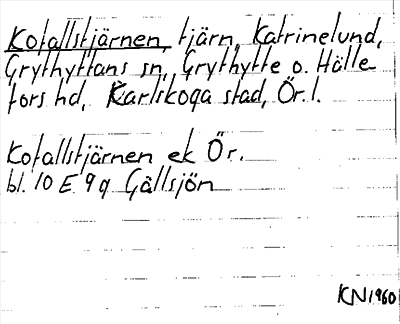 Kofallstjärnen, tjärn, Katrinelund,
Grythyttans sn, Grythytte o. Hälle
fors hd, Karlskoga stad, Ör. l.
Kofallstjärnen ek Ör.
bl. 10 E 9 q Gällsjön
KN 1960